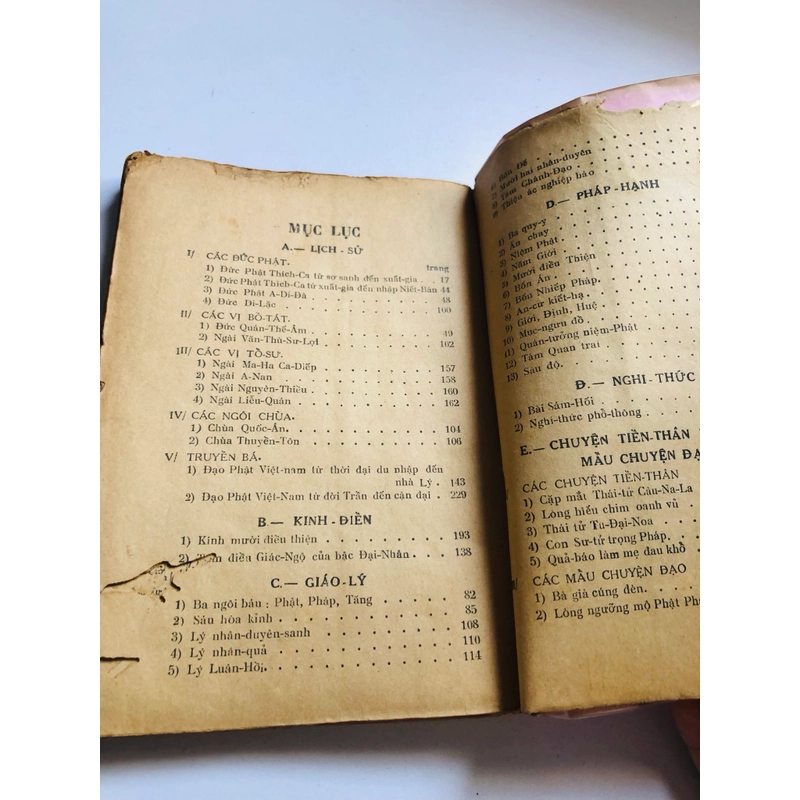 MỤC LỤC
A.— LỊCH - SỬ
I/ CÁC ĐỨC PHẬT. trang
1) Đức Phật Thích-Ca từ sơ sanh đến xuất-gia . . 17
2) Đức Phật Thích-Ca từ xuất-gia đến nhập Niết-Bàn 44
3) Đức Phật A-Di-Đà . . . . . . . . 48
4) Đức Di-Lặc . . . . . . . . 100
II/ CÁC VỊ BỒ-TÁT.
1) Đức Quán-Thế-Âm . . . . . . . . 49
2) Ngài Văn-Thù-Sư-Lợi . . . . . . . . 102
III/ CÁC VỊ TỔ-SƯ.
1) Ngài Ma-Ha Ca-Diếp . . . . . . . . 157
2) Ngài A-Nan . . . . . . . . 158
3) Ngài Nguyên-Thiều . . . . . . . . 160
4) Ngài Liễu-Quán . . . . . . . . 162
IV/ CÁC NGÔI CHÙA.
1) Chùa Quốc-Ân. . . . . . . . . 104
2) Chùa Thuyền-Tôn . . . . . . . . 106
V/ TRUYỀN BÁ.
1) Đạo Phật Việt-nam từ thời đại du nhập đến
nhà Lý . . 143
2) Đạo Phật Việt-Nam từ đời Trần đến cận đại . 229
B.— KINH - ĐIỂN
1) Kinh mười điều thiện . . . . . . . . 193
2) Tám điều Giác-Ngộ của bậc Đại-Nhân . . . . 138
C.— GIÁO-LÝ
1) Ba ngôi báu : Phật, Pháp, Tăng . . . . . 82
2) Sáu hòa kỉnh . . . . . . . . 85
3) Lý nhân-duyên-sanh . . . . . . . . 108
4) Lý nhân-quả . . . . . . . . 110
5) Lý Luân-Hồi. . . . . . . . . 114
6) Bốn Đế . . . . . . . .
7) Mười hai nhân-duyên . . . . .
8) Tám Chánh-Đạo . . . . . .
9) Thiện ác nghiệp báo . . . . .
D.— PHÁP - HẠNH
1) Ba quy-y . . . . . . . .
2) Ăn chay . . . . . . . .
3) Niệm Phật . . . . . . . .
4) Năm Giới . . . . . . . .
5) Mười điều Thiện . . . . .
6) Bốn Ân . . . . . . . .
7) Bốn Nhiếp Pháp. . . . . .
8) An-cư kiết-hạ . . . . . .
9) Giới, Định, Huệ . . . . .
10) Mục-ngưu đồ . . . . . .
11) Quán-tưởng niệm-Phật . . .
12) Tám Quan trai . . . . .
13) Sáu độ. . . . . . . .
Đ.— NGHI - THỨC
1) Bài Sám-Hối . . . . . .
2) Nghi-thức phổ-thông . . .
E.— CHUYỆN TIỀN-THÂN
MẪU CHUYỆN ĐẠ
CÁC CHUYỆN TIỀN-THÂN
1) Cặp mắt Thái-tử Câu-Na-La
2) Lòng hiếu chim oanh vũ . .
3) Thái tử Tu-Đại-Noa . . .
4) Con Sư-tử trọng Pháp. . .
5) Quả-báo làm mẹ đau khổ
II/ CÁC MẪU CHUYỆN ĐẠO
1) Bà già cúng đèn. . . . .
2) Lòng ngưỡng mộ Phật Ph